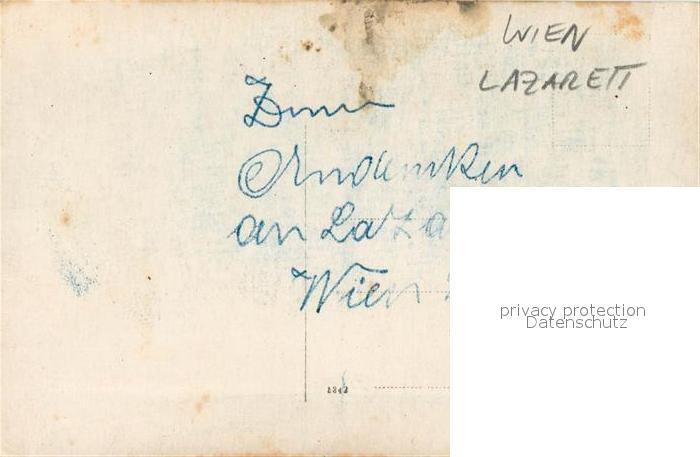 WIEN
LAZARETT
Zum
Andemken
an Laza
Wien
privacy protection
Datenschutz